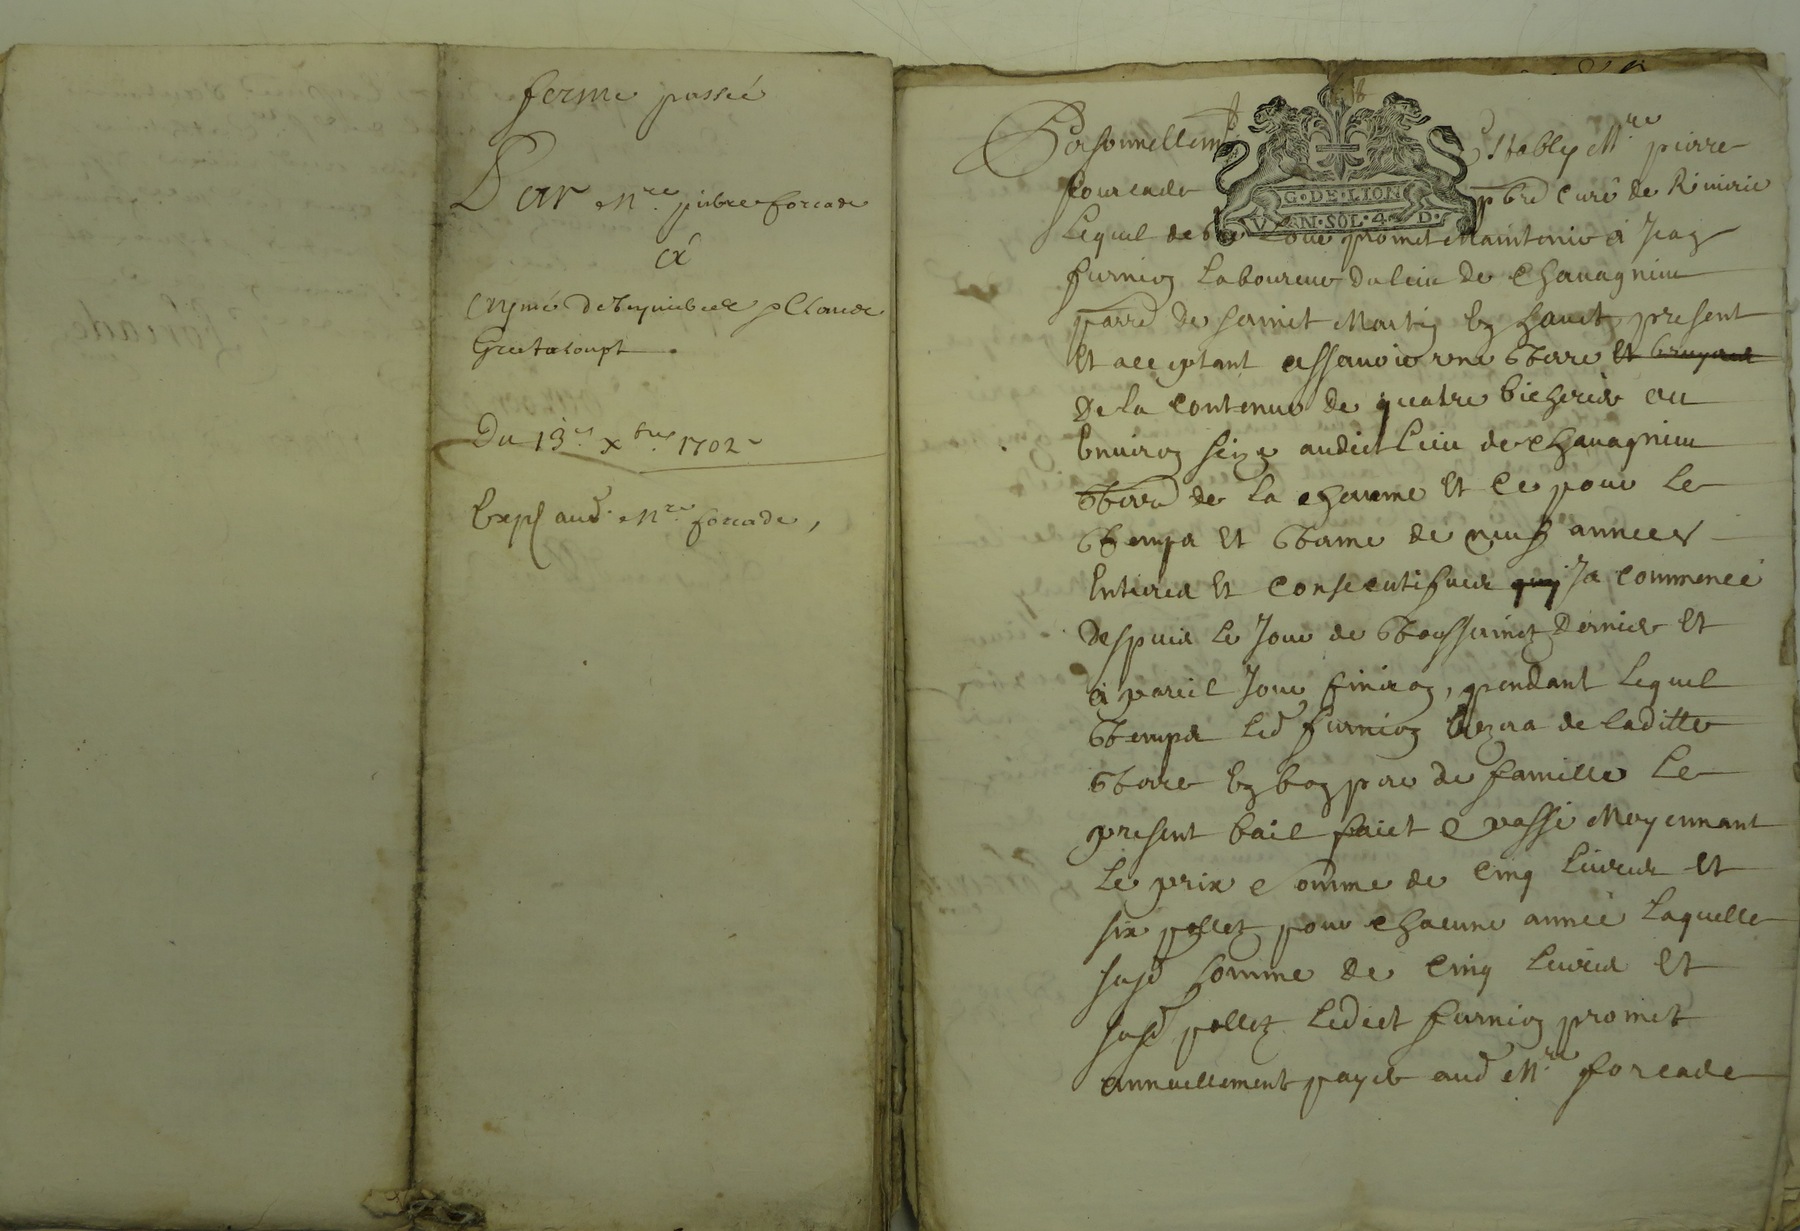 ferme passée
Par Mre pierre forcade
a
Grataloupt
Du 13e xbre 1702
Expé aud Mre forcade,
Personnellemt Estably Mre pierre
fourcade pbre curé de Rivirie
G·DE·LION
V·AN·SOL·4·D·
Lequel de Loue promet Maintenir à Jean
furnion Laboureur du lieu de Chavagnieu
parre de sainct Martin en haut present
Et acceptant assavoir une Terre Et bruyere
De la contenue de quatre bicherée ou
Environ size audict lieu de chavagnieu
Terre de la charme Et Ce pour Le
Temps Et Terme de neuf années
Entieres Et Consecutifves quy Ja commencé
Despuis le Jour de Toussainct Dernier Et
à pareil Jour finiron, pendant Lequel
Temps led furnion uzera de laditte
Terre En bon pere de famille Le
present bail faict & passé Moyennant
Le prix & somme de Cinq Livres Et
six pollet pour chacune année Laquelle
susd somme de Cinq Livres Et
susd pollet Ledict furnion promet
annuellement payer aud Mre forcade